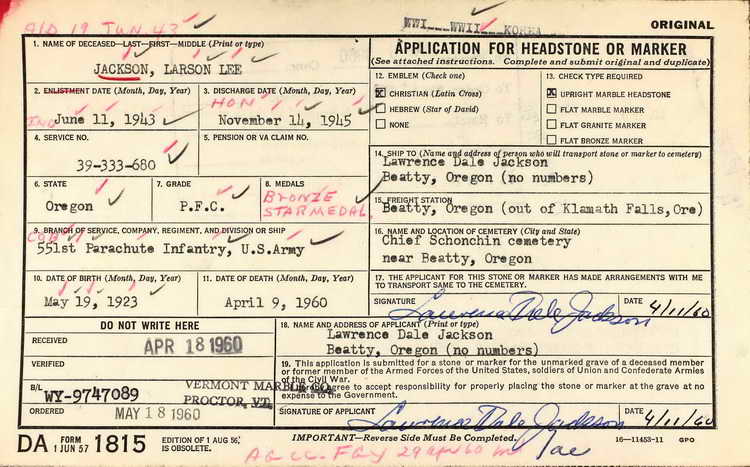 A/D 19 JUN. 43
WWI WWII KOREA
ORIGINAL
1. NAME OF DECEASED—LAST—FIRST—MIDDLE (Print or type)
JACKSON, LARSON LEE
2. ENLISTMENT DATE (Month, Day, Year)
IND
June 11, 1943
3. DISCHARGE DATE (Month, Day, Year)
HON
November 14, 1945
4. SERVICE NO.
39-333-680
5. PENSION OR VA CLAIM NO.
6. STATE
Oregon
7. GRADE
P.F.C.
8. MEDALS
BRONZE
STAR MEDAL
9. BRANCH OF SERVICE, COMPANY, REGIMENT, AND DIVISION OR SHIP
551st Parachute Infantry, U.S.Army
10. DATE OF BIRTH (Month, Day, Year)
May 19, 1923
11. DATE OF DEATH (Month, Day, Year)
April 9, 1960
APPLICATION FOR HEADSTONE OR MARKER
(See attached instructions. Complete and submit original and duplicate)
12. EMBLEM (Check one)
X CHRISTIAN (Latin Cross)
HEBREW (Star of David)
NONE
13. CHECK TYPE REQUIRED
X UPRIGHT MARBLE HEADSTONE
FLAT MARBLE MARKER
FLAT GRANITE MARKER
FLAT BRONZE MARKER
14. SHIP TO (Name and address of person who will transport stone or marker to cemetery)
Lawrence Dale Jackson
Beatty, Oregon (no numbers)
15. FREIGHT STATION
Beatty, Oregon (out of Klamath Falls, Ore)
16. NAME AND LOCATION OF CEMETERY (City and State)
Chief Schonchin cemetery
near Beatty, Oregon
17. THE APPLICANT FOR THIS STONE OR MARKER HAS MADE ARRANGEMENTS WITH ME
TO TRANSPORT SAME TO THE CEMETERY.
SIGNATURE Lawrence Dale Jackson DATE 4/11/60
DO NOT WRITE HERE
RECEIVED APR 18 1960
VERIFIED
B/L WY-9747089
VERMONT MARBLE CO.
PROCTOR, VT.
ORDERED MAY 18 1960
18. NAME AND ADDRESS OF APPLICANT (Print or type)
Lawrence Dale Jackson
Beatty, Oregon (no numbers)
19. This application is submitted for a stone or marker for the unmarked grave of a deceased member
or former member of the Armed Forces of the United States, soldiers of Union and Confederate Armies
of the Civil War.
I hereby agree to accept responsibility for properly placing the stone or marker at the grave at no
expense to the Government.
SIGNATURE OF APPLICANT Lawrence Dale Jackson DATE 4/11/60
DA FORM 1 JUN 57 1815
EDITION OF 1 AUG 56, IS OBSOLETE.
IMPORTANT—Reverse Side Must Be Completed.
16—11453-11 GPO